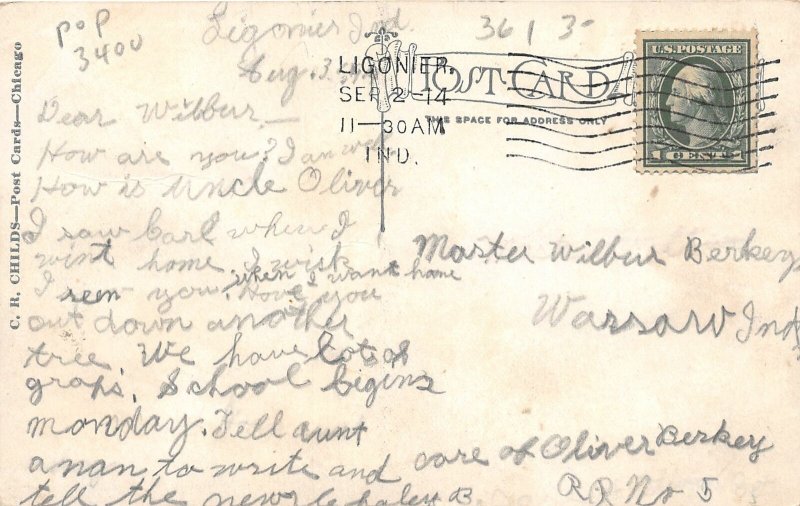 pop
3400
Ligonier Ind.
Aug. 3
361 3
LIGONIER,
SEP 2-14
11-30AM
IND.
POST CARD
THE SPACE FOR ADDRESS ONLY
U.S. POSTAGE
1 CENT 1
C. R. CHILDS—Post Cards—Chicago
Dear Wilbur,—
How are you? I am well
How is Uncle Oliver
I saw Carl when I
wint home I wish
I seen you. when I want home
Have you
cut down another
tree. We have lots of
graps. School begins
monday. Tell aunt
anan to write and
tell the news
Master Wilbur Berkey
Warsaw Ind,
care of Oliver Berkey
RR No 5